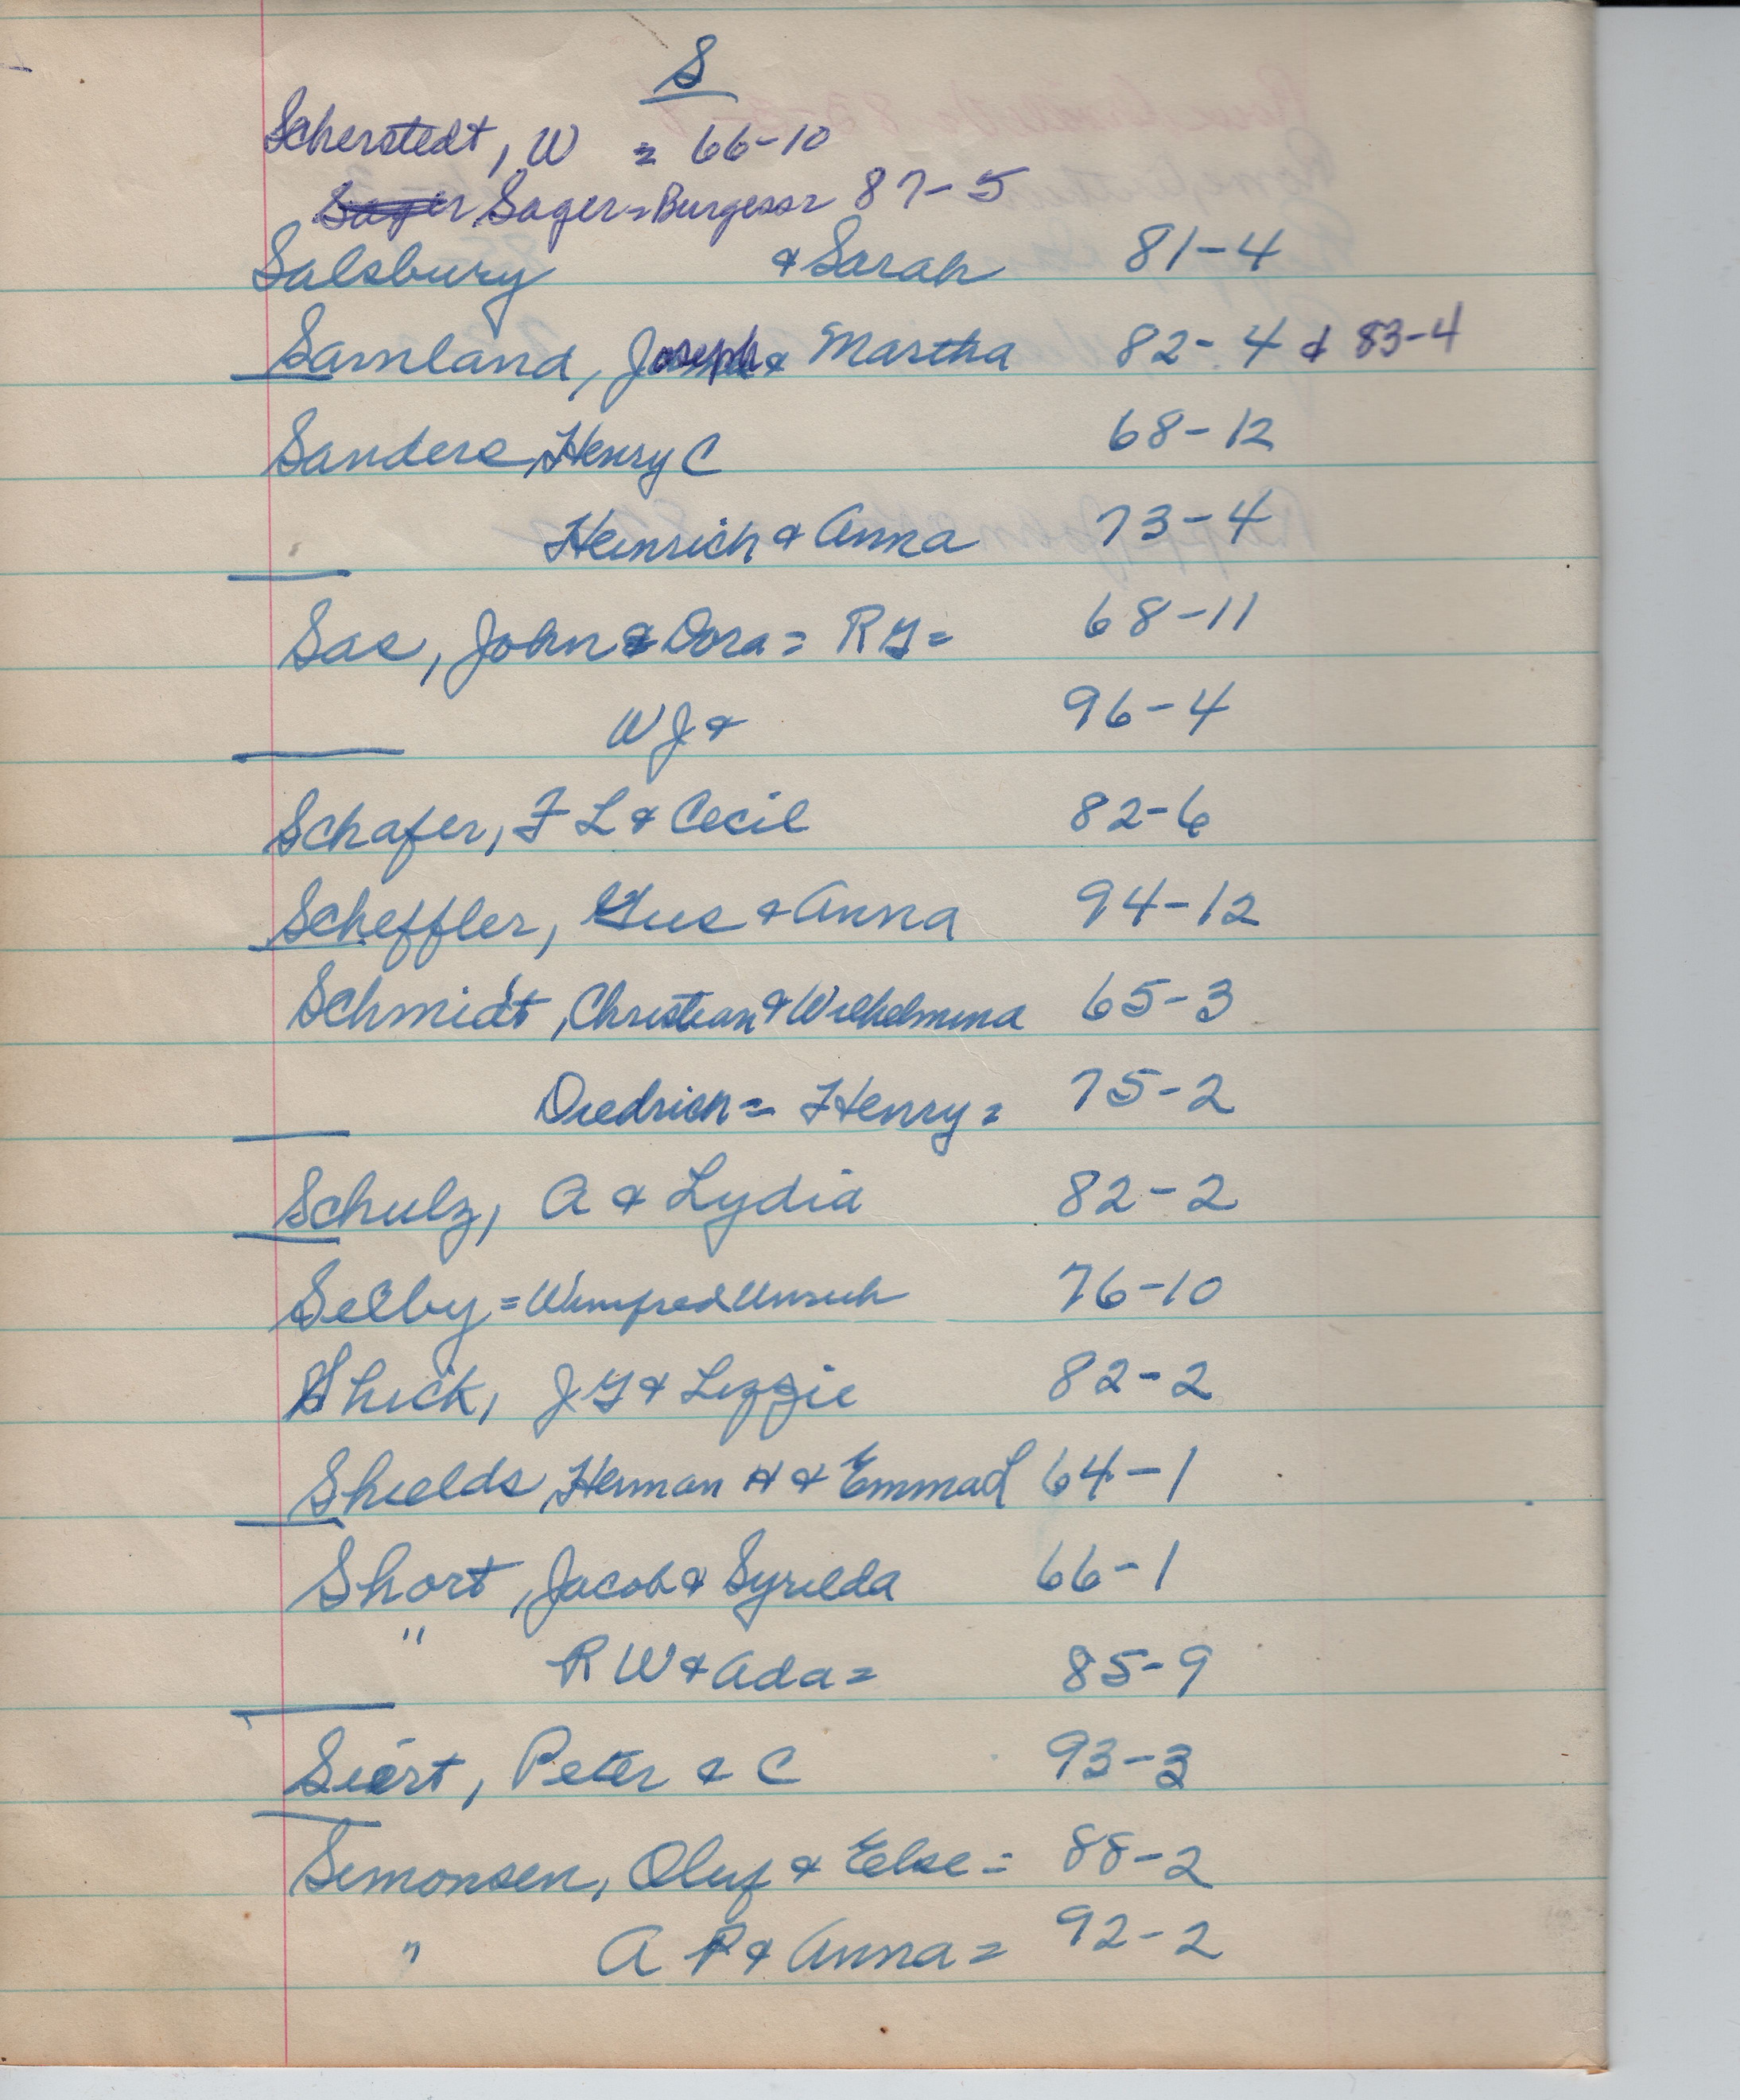 S
Scherstedt, W = 66-10
Sager Sager = Burgess 87-5
Salsbury & Sarah 81-4
Samland, Joseph & Martha 82-4 & 83-4
Sanders, Henry C 68-12
Heinrich & Anna 73-4
Sas, John & Dora = R G = 68-11
W J & 96-4
Schafer, F L & Cecil 82-6
Scheffler, Gus & Anna 94-12
Schmidt, Christian & Wilhelmina 65-3
Diedrich = Henry = 75-2
Schulz, A & Lydia 82-2
Selby = Winifred Unruh 76-10
Shick, J G & Lizzie 82-2
Shields, Herman H & Emma L 64-1
Short, Jacob & Syrilda 66-1
" R W & Ada = 85-9
Siert, Peter & C 93-3
Simonsen, Oluf & Else = 88-2
" A P & Anna = 92-2